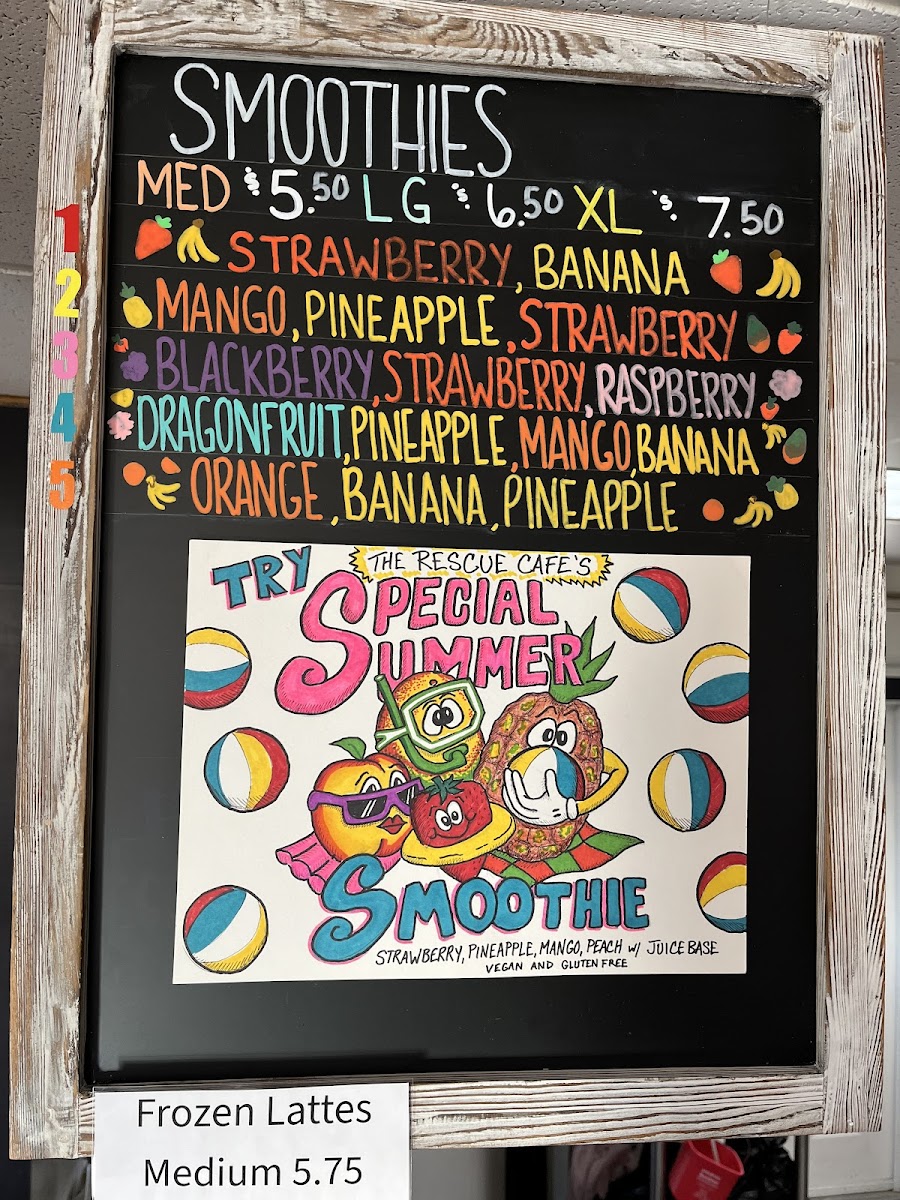 SMOOTHIES
MED $5.50 LG $6.50 XL $7.50
1 STRAWBERRY, BANANA
2 MANGO, PINEAPPLE, STRAWBERRY
3 BLACKBERRY, STRAWBERRY, RASPBERRY
4 DRAGONFRUIT, PINEAPPLE, MANGO, BANANA
5 ORANGE, BANANA, PINEAPPLE
TRY THE RESCUE CAFE'S
SPECIAL
SUMMER
SMOOTHIE
STRAWBERRY, PINEAPPLE, MANGO, PEACH W/ JUICE BASE
VEGAN AND GLUTEN FREE
Frozen Lattes
Medium 5.75